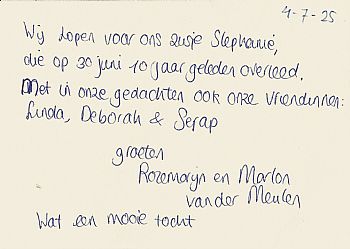 4-7-25
Wij lopen voor ons zusje Stephanie,
die op 30 juni 10 jaar geleden overleed.
Met in onze gedachten ook onze vriendinnen:
Linda, Deborah & Serap
groeten
Rozemarijn en Marlon
van der Meulen
Wat een mooie tocht